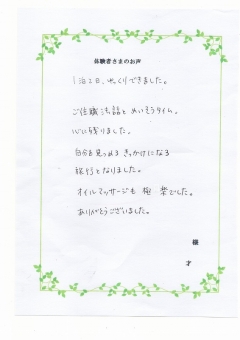 体験者さまのお声
1泊2日、ゆっくりできました。
ご住職法話とめいそうタイム。
心に残りました。
自分を見つめるきっかけになる
旅行となりました。
オイルマッサージも極楽でした。
ありがとうございました。
様
才